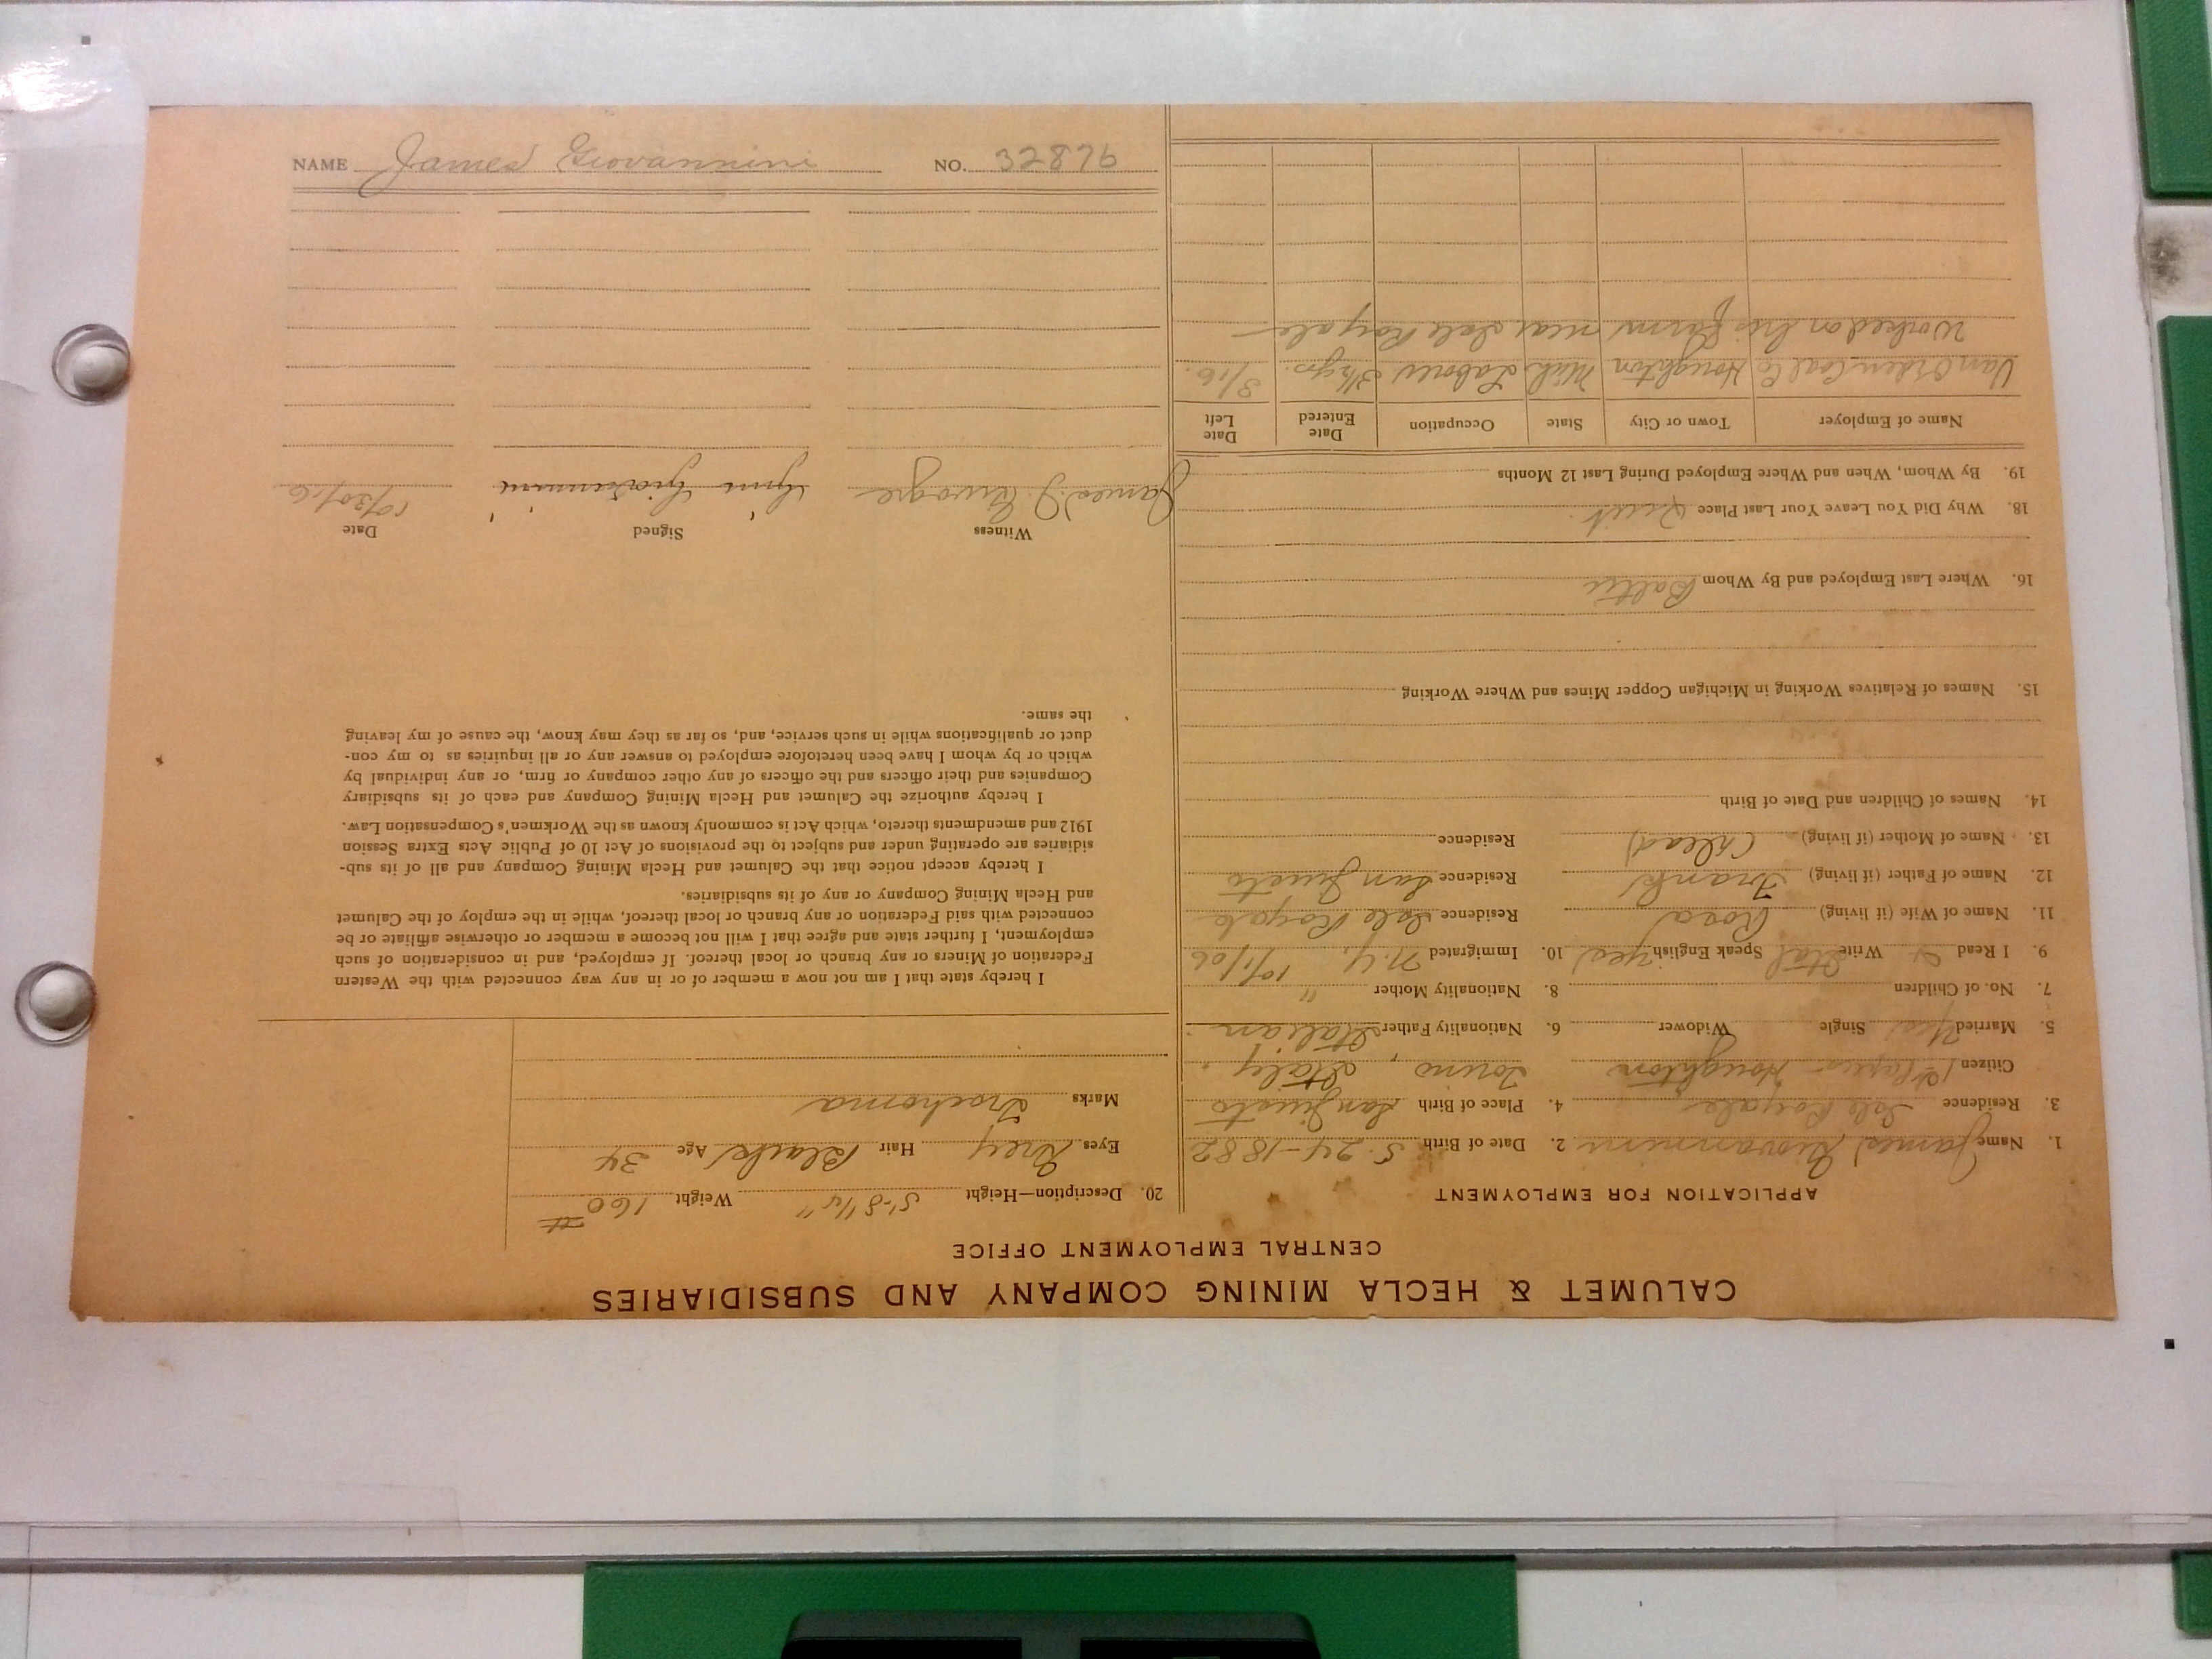 NAME James Giovannini NO. 32876
CALUMET & HECLA MINING COMPANY AND SUBSIDIARIES
CENTRAL EMPLOYMENT OFFICE
APPLICATION FOR EMPLOYMENT
1. Name James Giovannini 2. Date of Birth 5-24-1882
3. Residence Isle Royale 4. Place of Birth San Giusto
Citizen 1st Papers Houghton Torino, Italy.
5. Married Yes Single Widower 6. Nationality Father Italian
7. No. of Children 8. Nationality Mother "
9. I Read Write Ital Speak English yes 10. Immigrated N.Y. 10/1/06
11. Name of Wife (if living) Rosa Residence Isle Royale
12. Name of Father (if living) Frank Residence San Giusto
13. Name of Mother (if living) (Dead) Residence
14. Names of Children and Date of Birth
15. Names of Relatives Working in Michigan Copper Mines and Where Working
16. Where Last Employed and By Whom Baltic
18. Why Did You Leave Your Last Place Quit
19. By Whom, When and Where Employed During Last 12 Months
Name of Employer Town or City State Occupation Date Entered Date Left
Van Orden Coal Co Houghton Mich Laborer 3½ yrs. 3/16.
Worked on his farm near Isle Royale
20. Description—Height 5'-8 1/4" Weight 160 #
Eyes Grey Hair Black Age 34
Marks Trachoma
I hereby state that I am not now a member of or in any way connected with the Western
Federation of Miners or any branch or local thereof. If employed, and in consideration of such
employment, I further state and agree that I will not become a member or otherwise affiliate or be
connected with said Federation or any branch or local thereof, while in the employ of the Calumet
and Hecla Mining Company or any of its subsidiaries.
I hereby accept notice that the Calumet and Hecla Mining Company and all of its sub-
sidiaries are operating under and subject to the provisions of Act 10 of Public Acts Extra Session
1912 and amendments thereto, which Act is commonly known as the Workmen's Compensation Law.
I hereby authorize the Calumet and Hecla Mining Company and each of its subsidiary
Companies and their officers and the officers of any other company or firm, or any individual by
which or by whom I have been heretofore employed to answer any or all inquiries as to my con-
duct or qualifications while in such service, and, so far as they may know, the cause of my leaving
the same.
Witness Signed Date
James J. 10/30/16